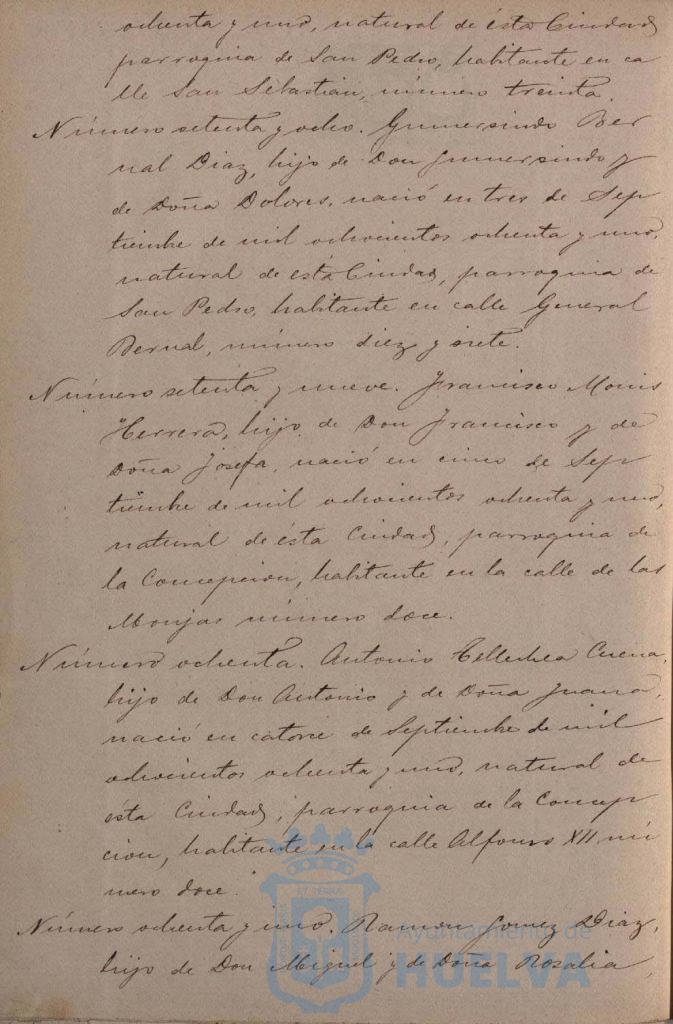 ochenta y uno, natural de ésta Ciudad,
parroquia de San Pedro, habitante en ca
lle San Sebastian, número treinta.
Número setenta y ocho. Gumersindo Ber
nal Diaz, hijo de Don Gumersindo y
de Doña Dolores, nació en tres de Sep
tiembre de mil ochocientos ochenta y uno,
natural de ésta Ciudad, parroquia de
San Pedro, habitante en calle General
Bernal, número diez y siete.
Número setenta y nueve. Francisco Monis
Herrera, hijo de Don Francisco y de
Doña Josefa, nació en cinco de Sep
tiembre de mil ochocientos ochenta y uno,
natural de ésta Ciudad, parroquia de
la Concepcion, habitante en la calle de las
Monjas número doce.
Número ochenta. Antonio Tellechea Cuena,
hijo de Don Antonio y de Doña Juana,
nació en catorce de Septiembre de mil
ochocientos ochenta y uno, natural de
esta Ciudad, parroquia de la Concep
cion, habitante en la calle Alfonso XII, nú
mero doce.
Número ochenta y uno. Ramon Gomez Diaz,
hijo de Don Miguel y de Doña Rosalia,
Ayuntamiento de
HUELVA